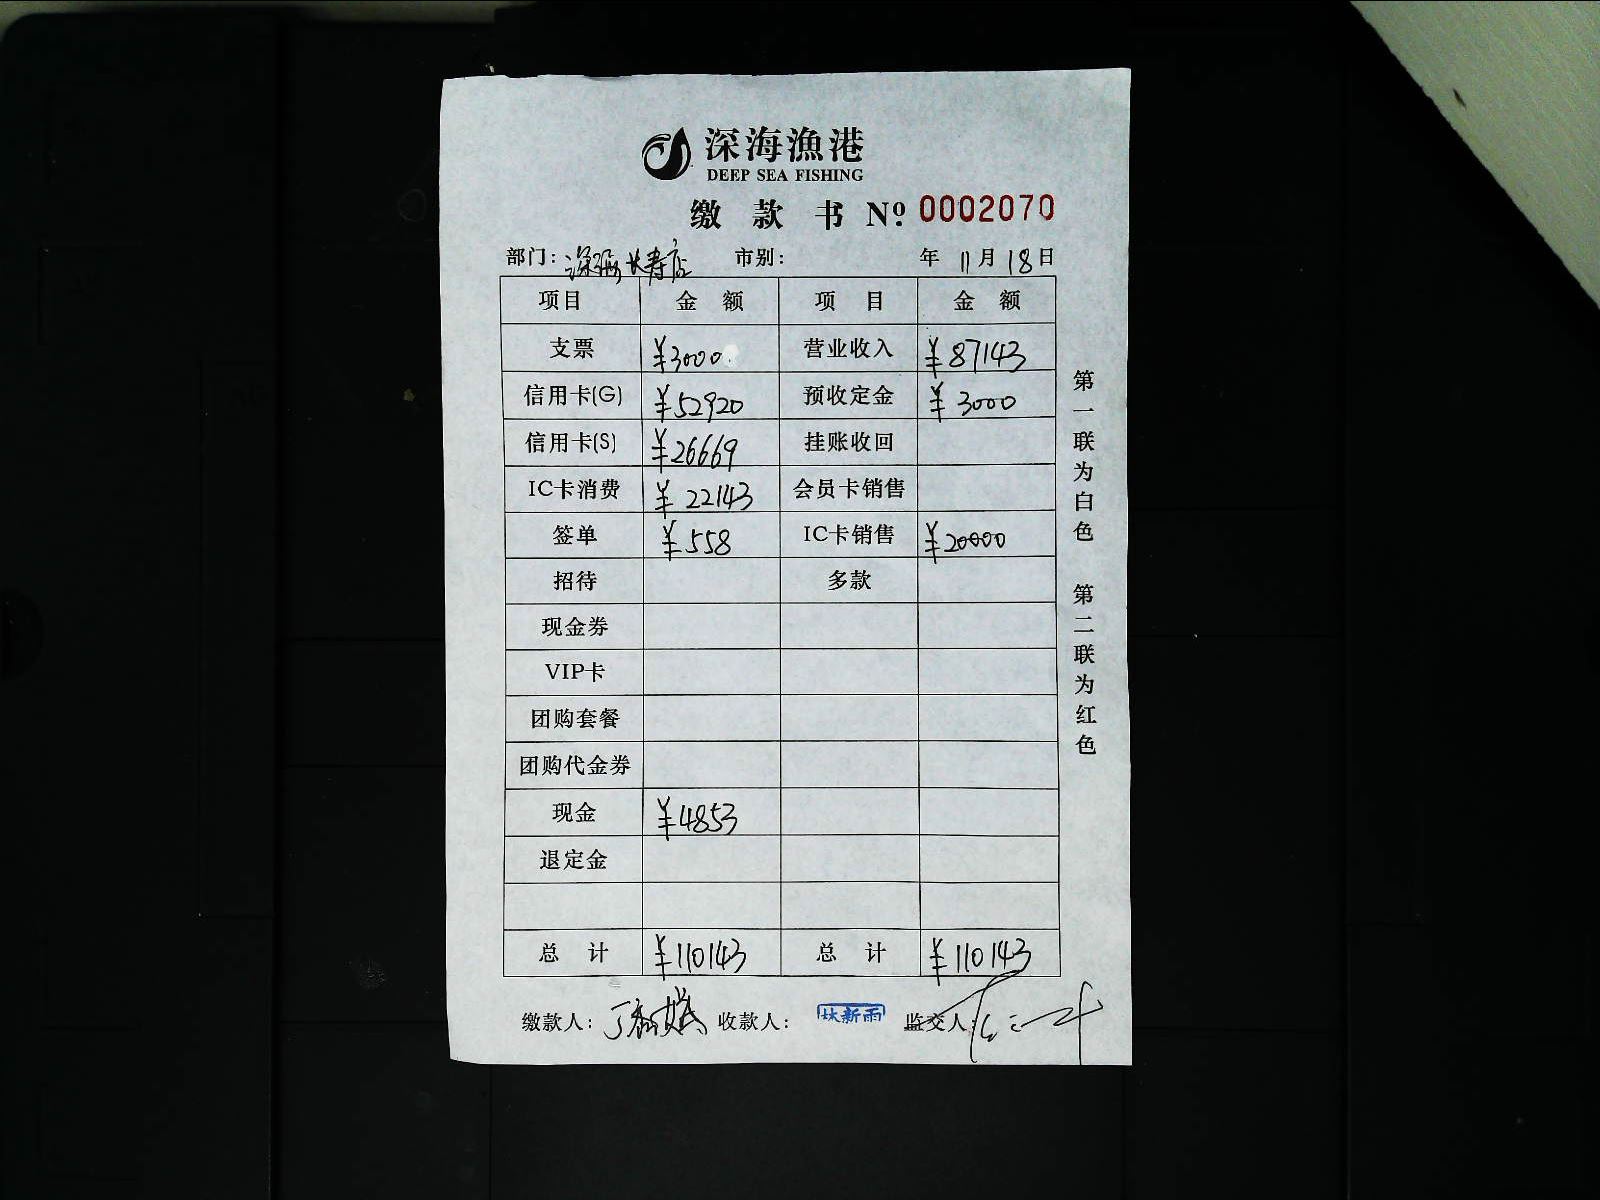 深海漁港
DEEP SEA FISHING
缴款书 Nº: 0002070
部门: 深海长寿店 市别: 年 11月18日
项目 金额 项目 金额
支票 ¥3000 营业收入 ¥87143
信用卡(G) ¥52920 预收定金 ¥3000
信用卡(S) ¥26669 挂账收回
IC卡消费 ¥22143 会员卡销售
签单 ¥558 IC卡销售 ¥20000
招待 多款
现金券
VIP卡
团购套餐
团购代金券
现金 ¥4853
退定金
总计 ¥110143 总计 ¥110143
缴款人: 收款人: 林新雨 监交人:
第一联为白色 第二联为红色